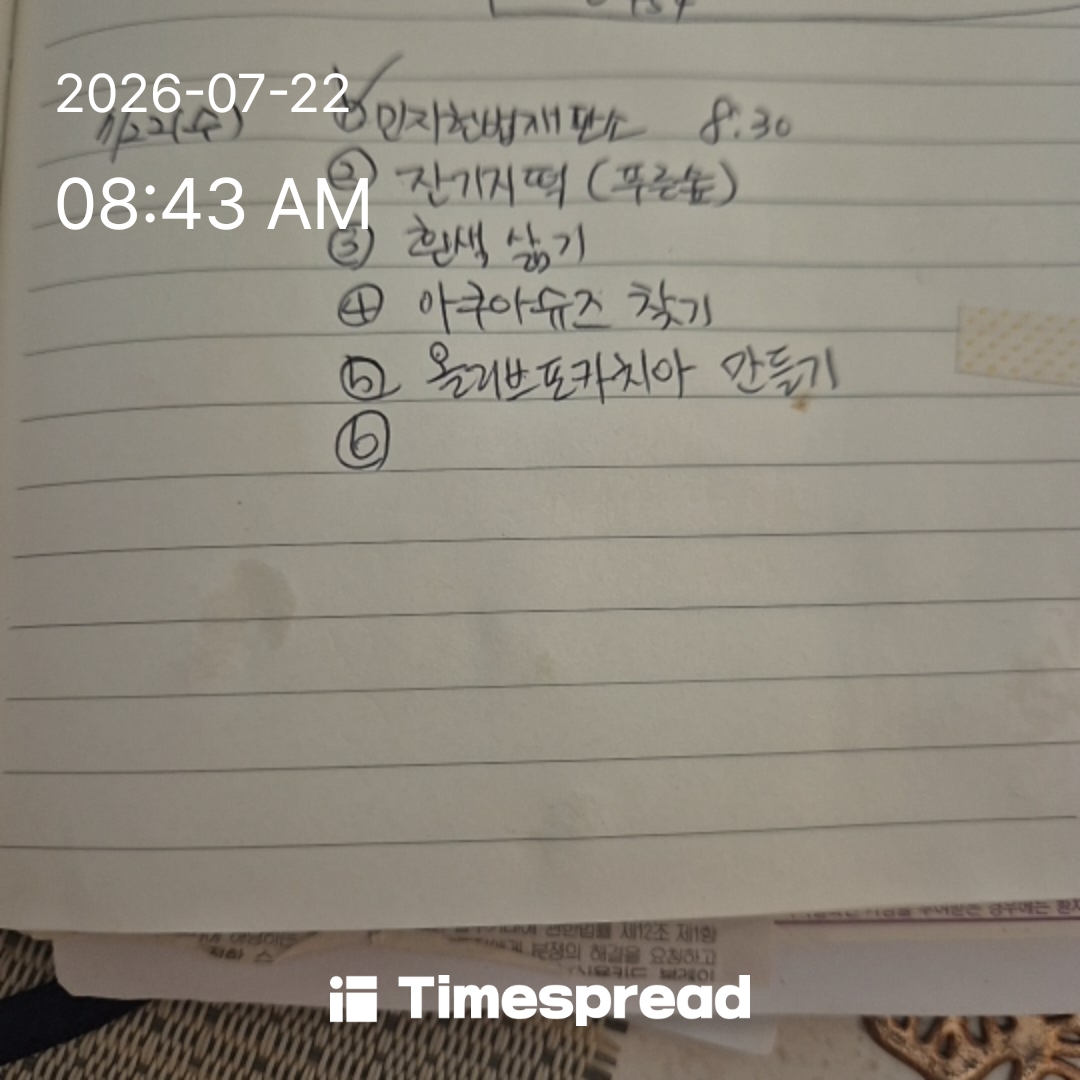 2026-07-22
7/22(수) ① 민자헌법재판소 8:30
08:43 AM
② 잔기지떡 (푸른숲)
③ 흰색 삶기
④ 아쿠아슈즈 찾기
⑤ 올리브포카치아 만들기
⑥
제12조 제1항
분쟁의 해결을 요청하고
Timespread